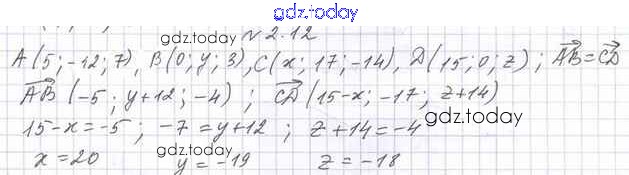 gdz.today
№2.12
A(5;-12;7), B(0;y;3), C(x;17;-14), D(15;0;z); AB⃗=CD⃗
AB⃗ (-5; y+12; -4); CD⃗ (15-x; -17; z+14)
15-x=-5; -7=y+12; z+14=-4
gdz.today
x=20 y=-19 z=-18
gdz.today
gdz.today